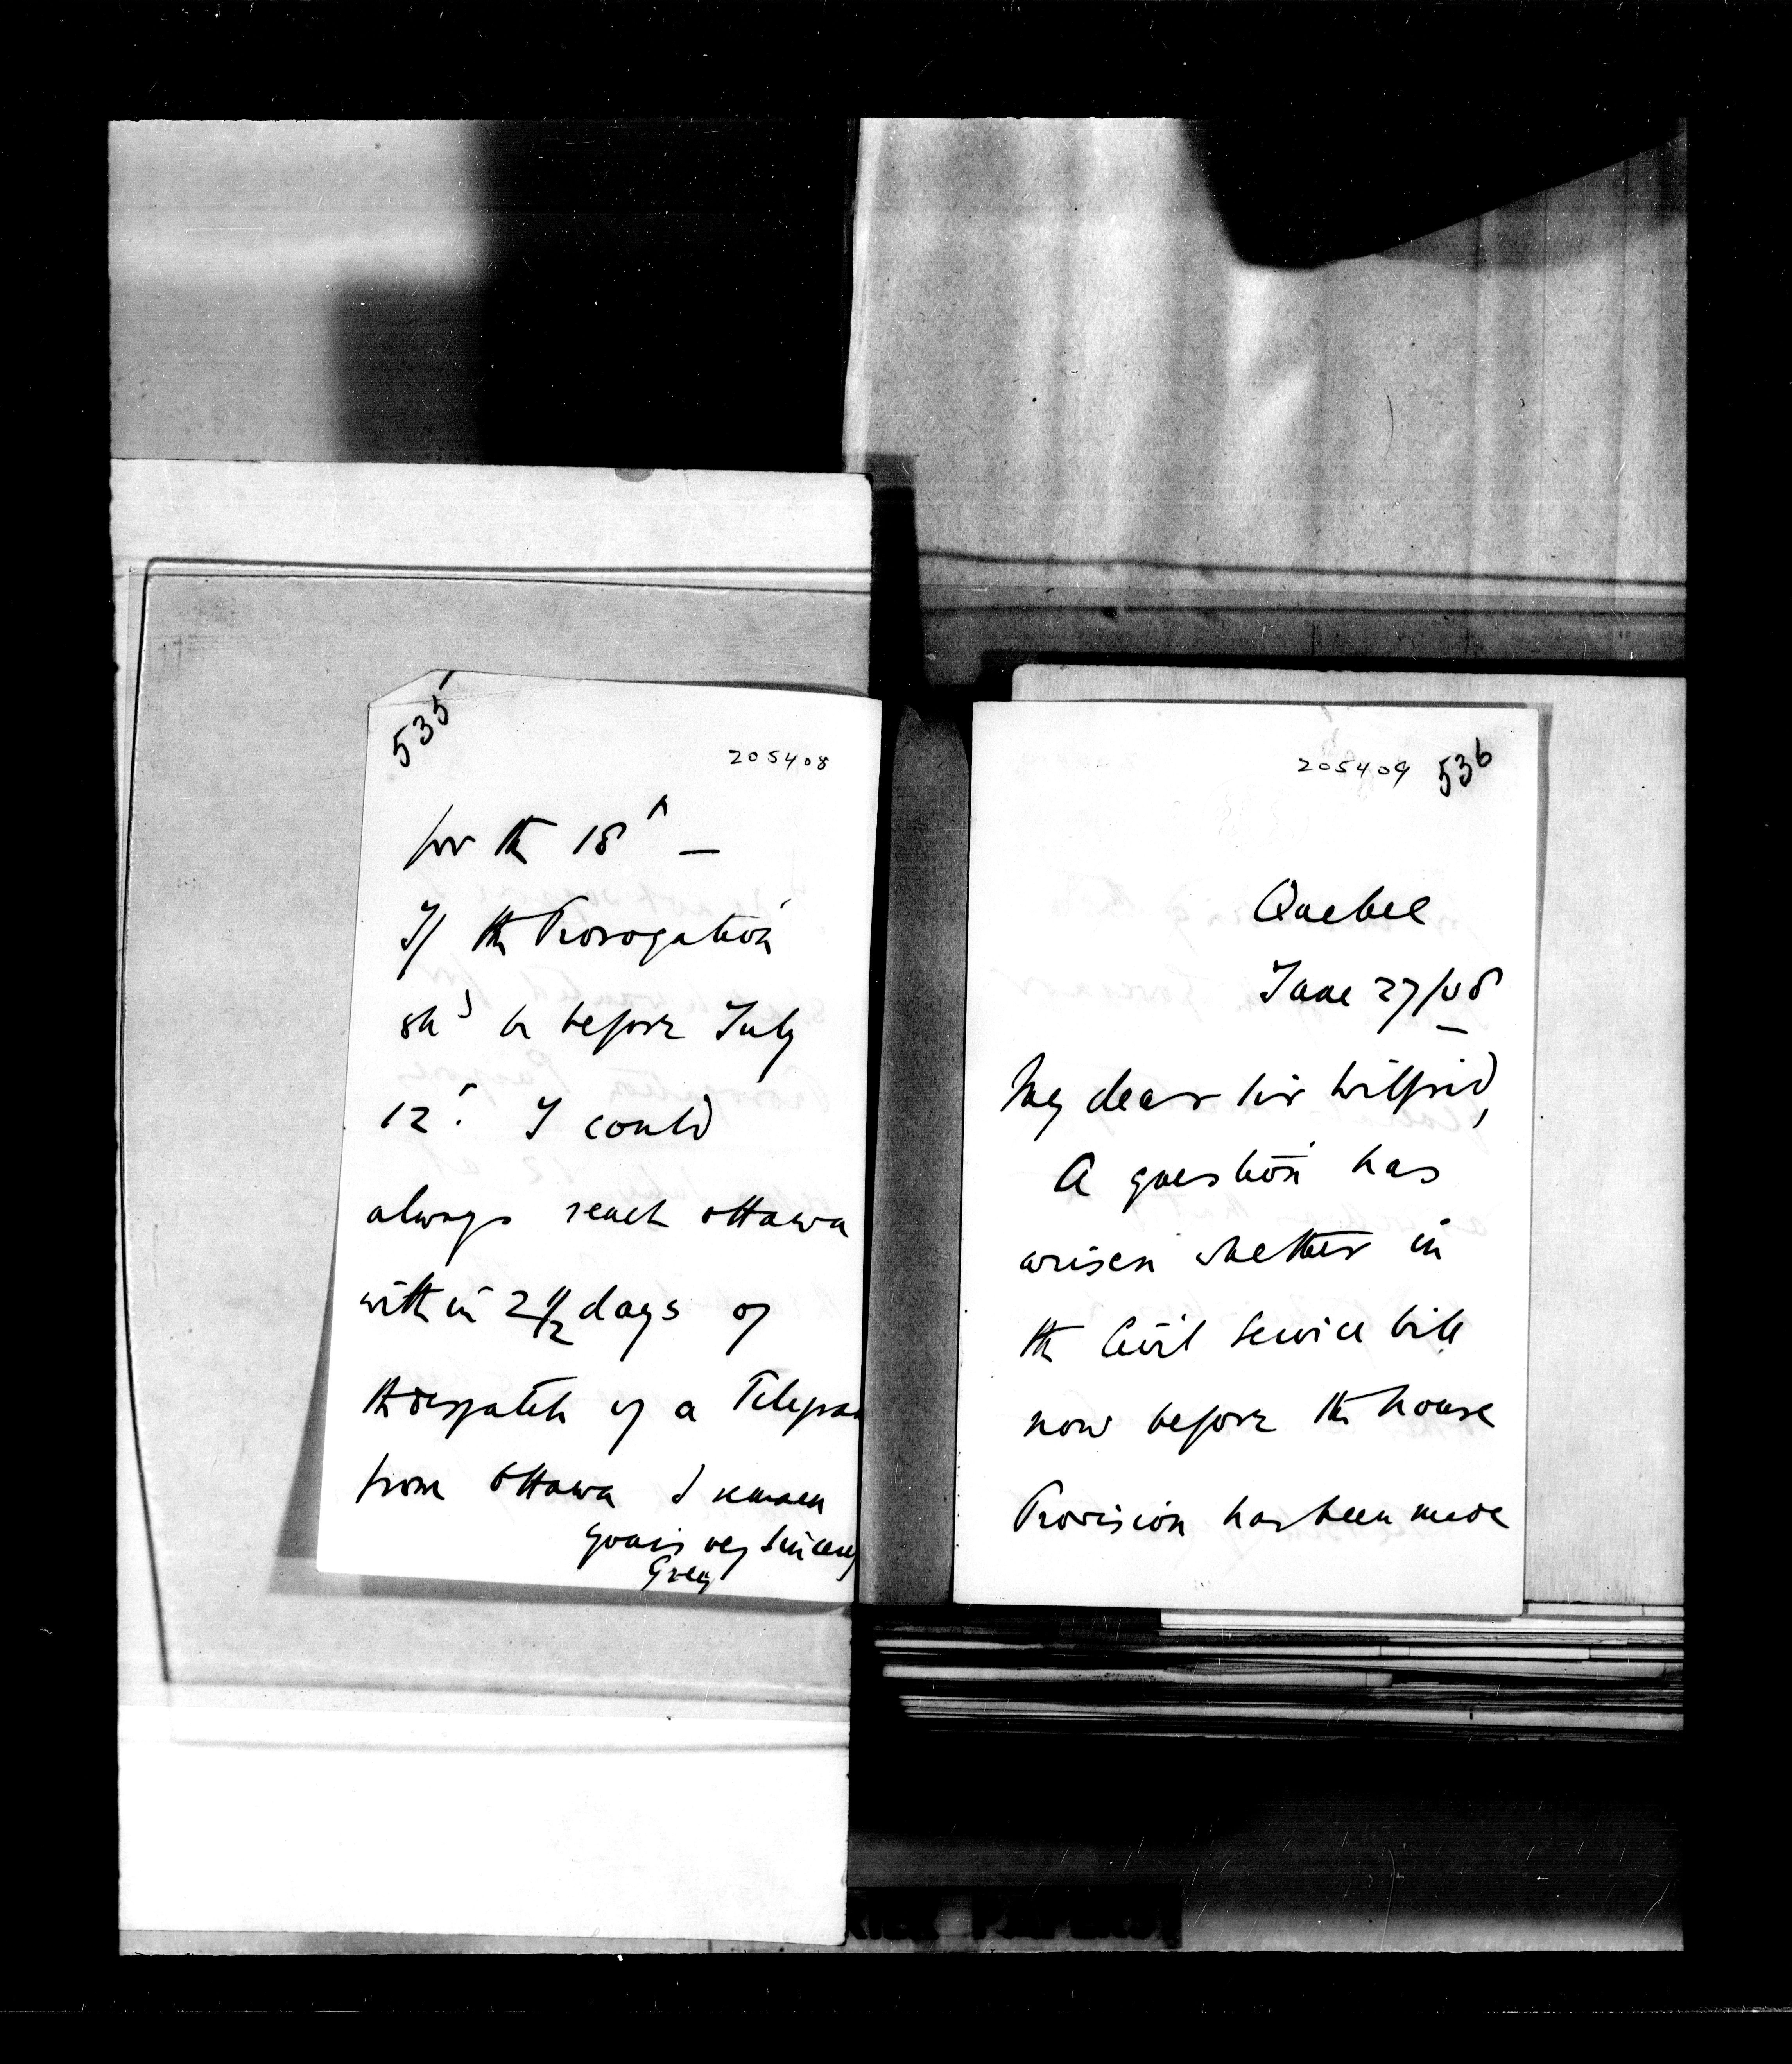 535
205408
for the 18th —
If the Prorogation
shd be before July
12th. I could
always reach Ottawa
within 2 1/2 days of
the despatch of a Telegram
from Ottawa I remain
yours very sincerely
Grey
205409 536
Quebec
June 27/08
My dear Sir Wilfrid,
A question has
arisen whether in
the Civil Service bill
now before the house
Provision has been made